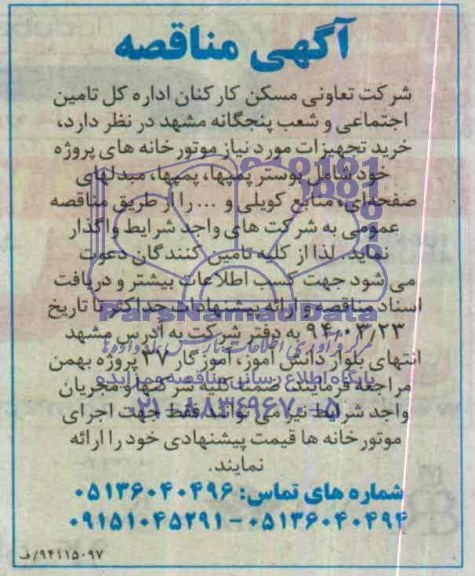 آگهی مناقصه
شرکت تعاونی مسکن کارکنان اداره کل تامین
اجتماعی و شعب پنجگانه مشهد در نظر دارد،
خرید تجهیزات مورد نیاز موتورخانه های پروژه
خود شامل بوستر پمپها، پمپها، مبدلهای
صفحه‌ای، منابع کویلی و ... را از طریق مناقصه
عمومی به شرکت های واجد شرایط واگذار
نماید. لذا از کلیه تامین کنندگان دعوت
می شود جهت کسب اطلاعات بیشتر و دریافت
اسناد مناقصه و ارائه پیشنهادات حداکثر تا تاریخ
ParsNamadData
۹۴/۰۳/۲۳ به دفتر شرکت به آدرس مشهد
انتهای بلوار دانش آموز، آموزگار ۳۷ پروژه بهمن
پایگاه اطلاع رسانی مناقصه و مزایده
مراجعه فرمایند. ضمنا کلیه شرکتها و مجریان
۰۲۱-۸۸۳۴۹۶۷۰-۵
واجد شرایط نیز می توانند فقط جهت اجرای
موتورخانه ها قیمت پیشنهادی خود را ارائه
نمایند.
شماره های تماس: ۰۵۱۳۶۰۴۰۴۹۶
۰۵۱۳۶۰۴۰۴۹۴ - ۰۹۱۵۱۰۴۵۲۹۱
۹۴۱۱۵۰۹۷/ف